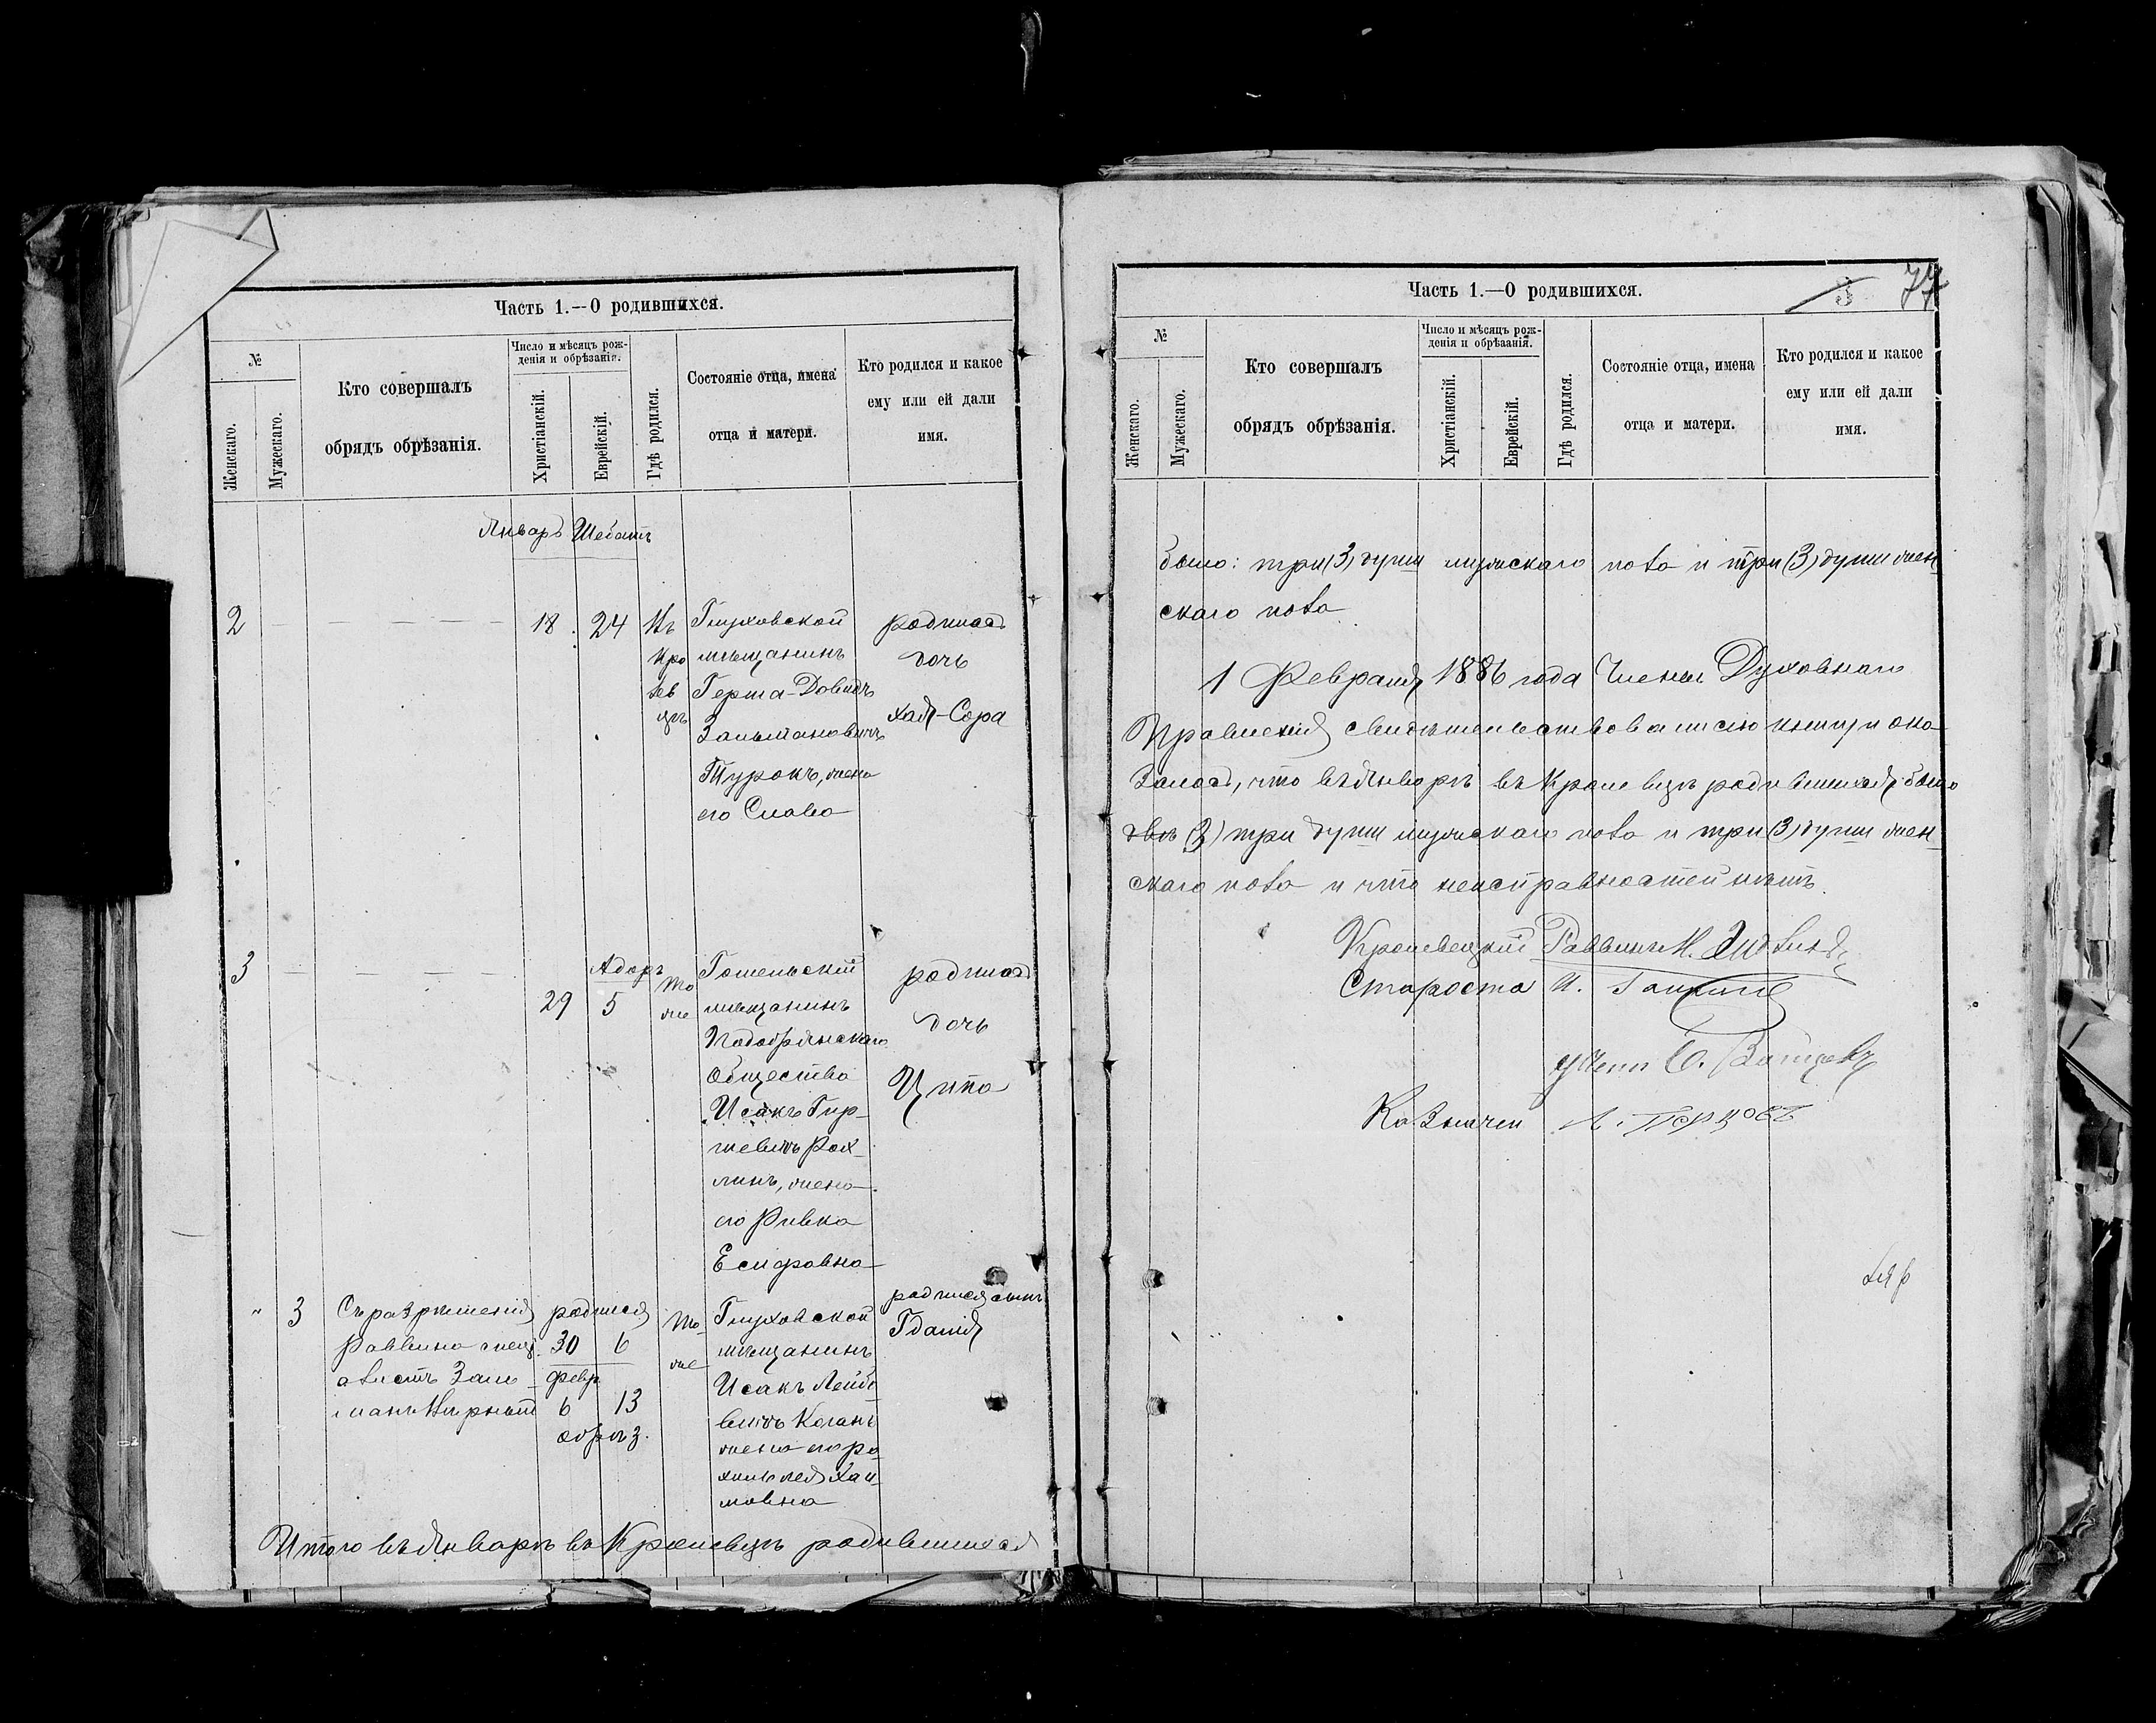 Часть 1.—О родившихся.
№
Женскаго.
Мужескаго.
Кто совершалъ
обрядъ обрѣзанія.
Число и мѣсяцъ рож-
денія и обрѣзанія.
Христіанскій.
Еврейскій.
Гдѣ родился.
Состояніе отца, имена
отца и матери.
Кто родился и какое
ему или ей дали
имя.
Январь Шебатъ
2
18
24
Въ
Кро
лев
цѣ
Глуховской
мѣщанинъ
Герша-Довидъ
Зальмановичъ
Турокъ, жена
его Слава
родилась
дочь
Хая-Сора
3
29
Адаръ
5
То
же
Гомельскій
мѣщанинъ
Подобрянскаго
общества
Исакъ Гир-
шевичъ Рох-
линъ, жена
его Ривка
родилась
дочь
Ципа
" 3
Съ разрѣшенія
Раввина спец
алистъ Заль-
манъ
родился
30 6
февр
6 13
обрѣз.
То-
же
Глуховской
мѣщанинъ
Исакъ Лейбо
вичъ Коганъ
жена его Ра
хиль Лея Хаи-
мовна
родился сынъ
Гдалія
Итого въ Январѣ въ Кролевцѣ родившихся
Часть 1.—О родившихся.
3 77
№
Женскаго.
Мужескаго.
Кто совершалъ
обрядъ обрѣзанія.
Число и мѣсяцъ рож-
денія и обрѣзанія.
Христіанскій.
Еврейскій.
Гдѣ родился.
Состояніе отца, имена
отца и матери.
Кто родился и какое
ему или ей дали
имя.
было: три (3) души мужскаго пола и три (3) души жен-
скаго пола
1 Февраля 1886 года Члены Духовнаго
Правленія свидѣтельствовали сію книгу и ока-
залось, что въ Январѣ въ Кролевцѣ родившихся было
двѣ (3) три души мужскаго пола и три (3) души жен-
скаго пола и что неисправностей нѣтъ.
Кролевецкій Раввинъ М.
Староста И.
Казначеи Л.